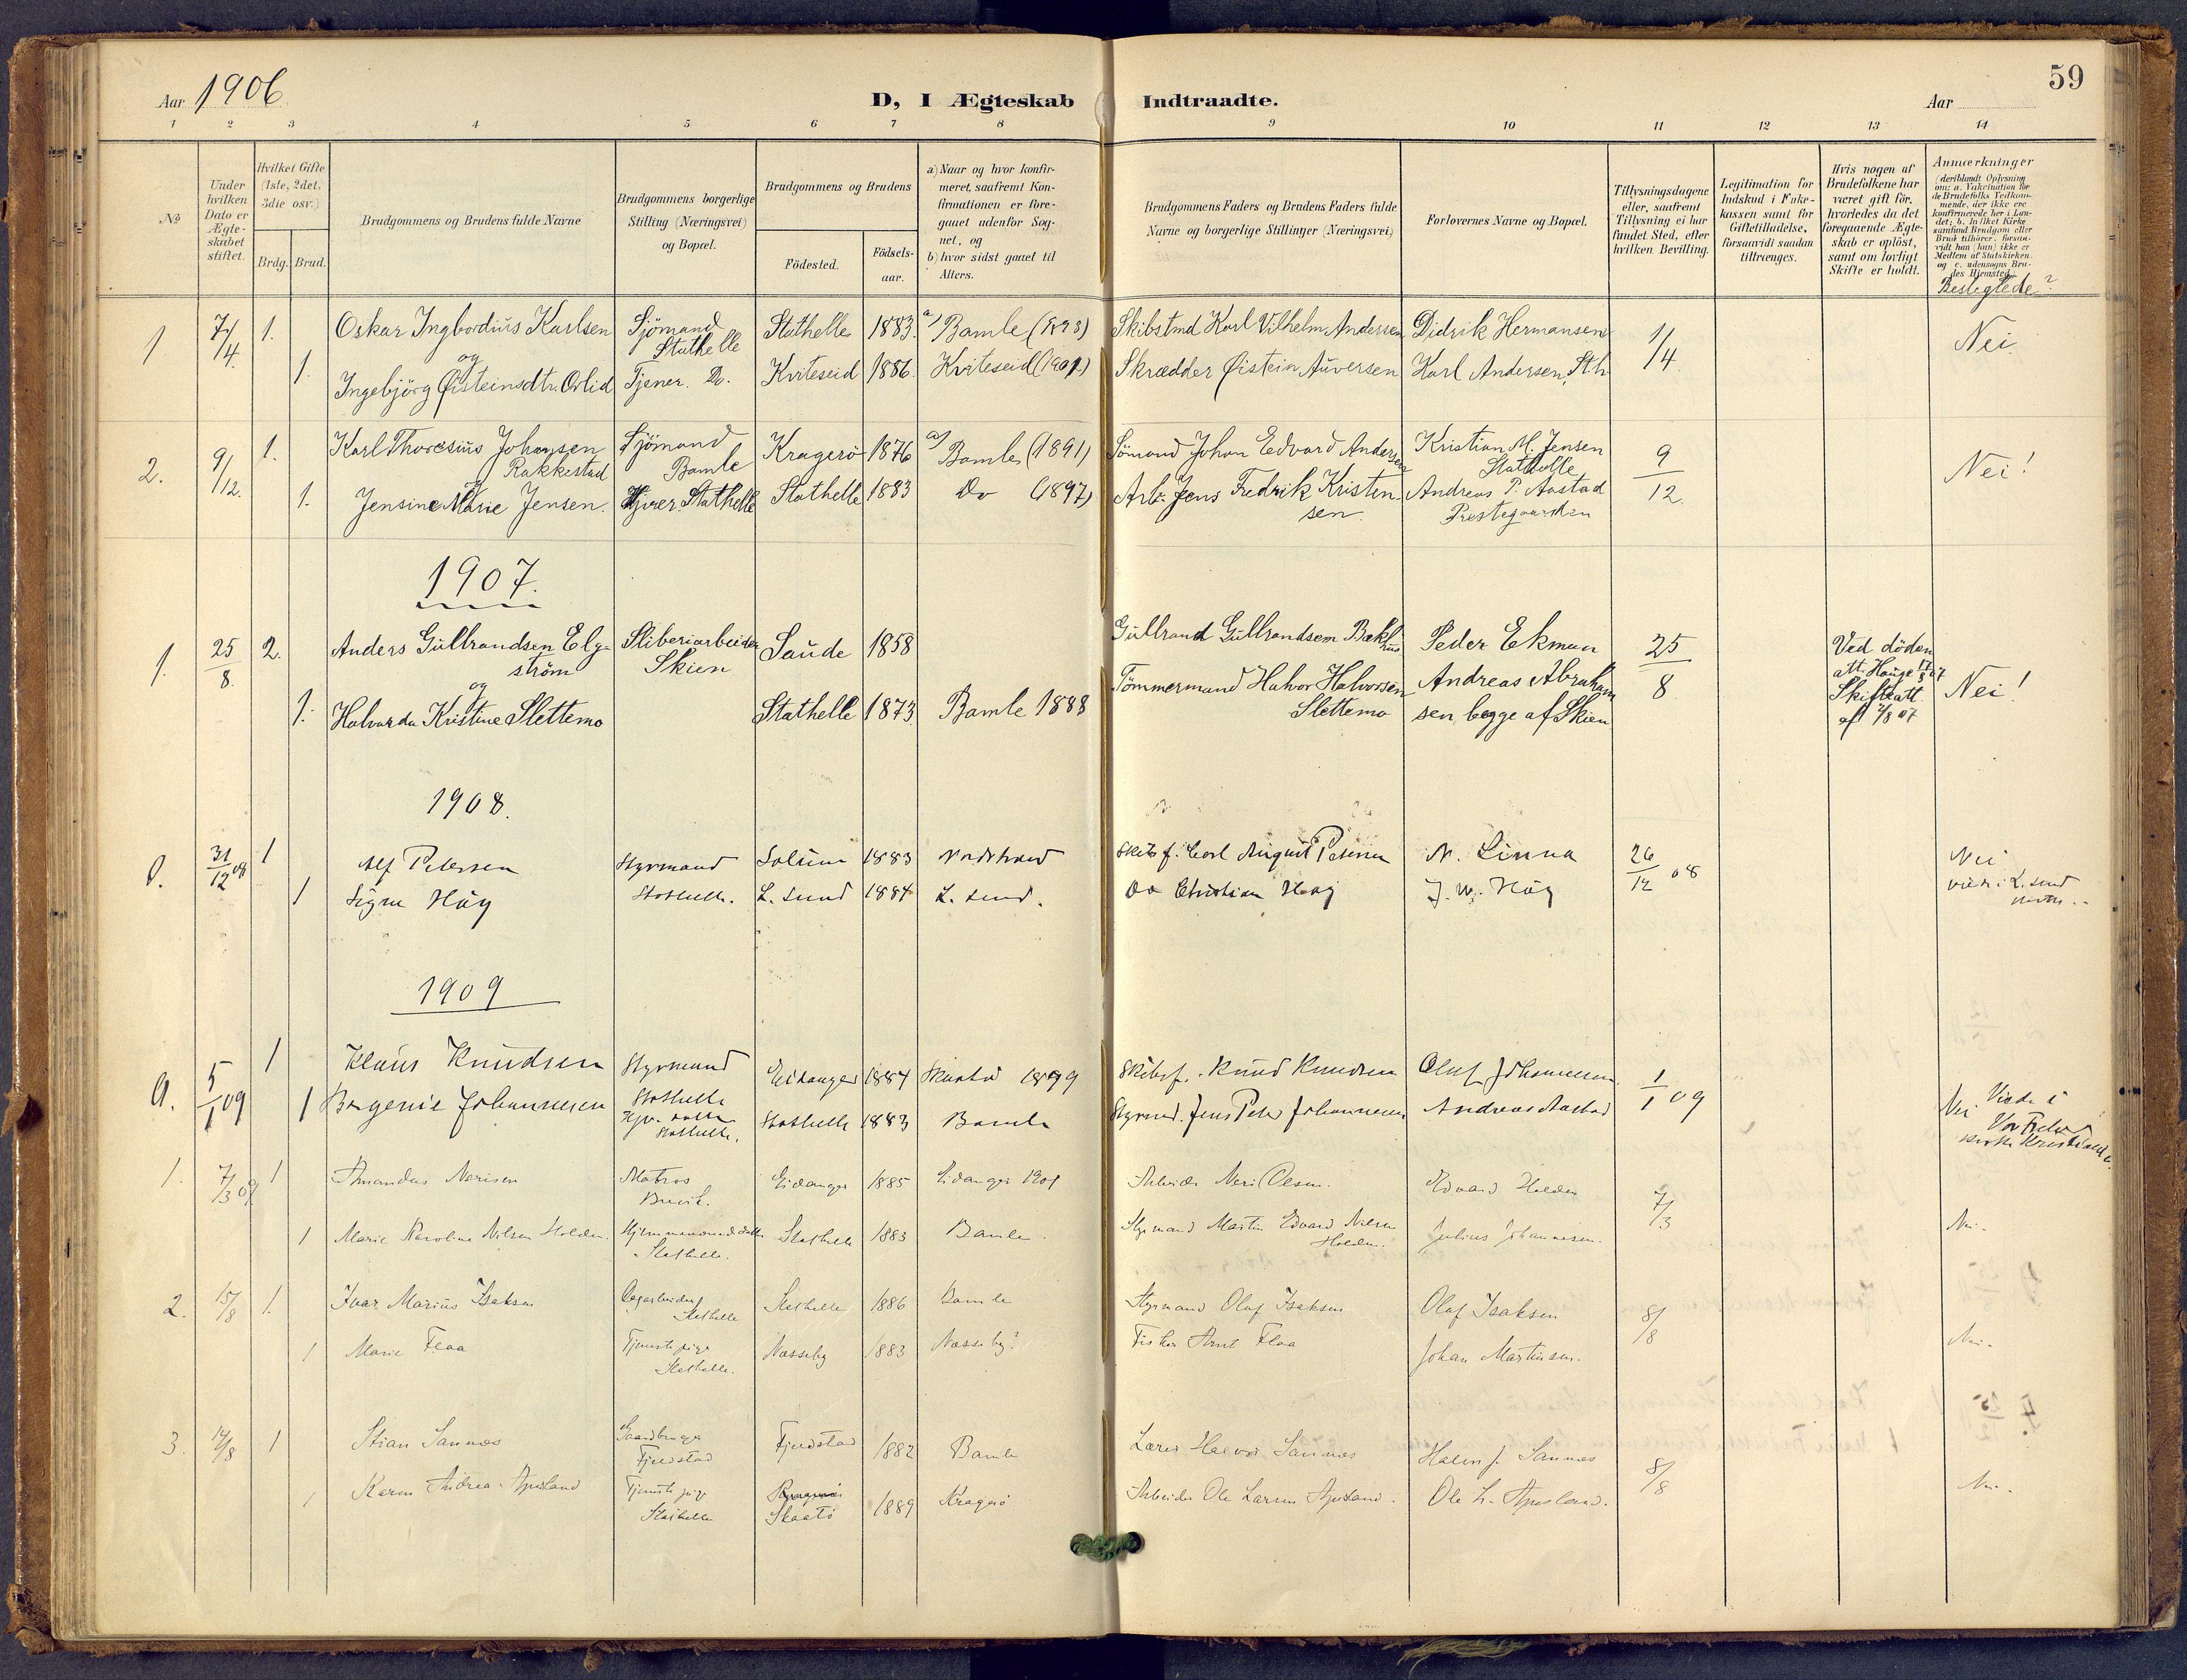 59
Aar 1906
D, I Ægteskab Indtraadte.
Aar
1 2 3 4 5 6 7 8 9 10 11 12 13 14
No
Under hvilken Dato er Ægteskabet stiftet.
Hvilket Gifte (1ste, 2det, 3die osv.)
Brdg. Brud.
Brudgommens og Brudens fulde Navne
Brudgommens borgerlige Stilling (Næringsvei) og Bopæl.
Brudgommens og Brudens
Födested.
Födsels-aar.
a) Naar og hvor konfir-
meret, saafremt Kon-
firmationen er fore-
gaaet udenfor Sog-
net, og
b) hvor sidst gaaet til
Alters.
Brudgommens Faders og Brudens Faders fulde
Navne og borgerlige Stillinger (Næringsvei)
Forlovernes Navne og Bopæl.
Tillysningsdagene
eller, saafremt
Tillysning ei har
fundet Sted, efter
hvilken Bevilling.
Legitimation for
Indskud i Enke-
kassen samt for
Giftetilladelse,
forsaavidt saadan
tiltrænges.
Hvis nogen af
Brudefolkene har
været gift för,
hvorledes da det
foregaaende Ægte-
skab er oplöst,
samt om lovligt
Skifte er holdt.
Anmærkninger
(deriblandt Oplysning
om: a. Vakcination for
de Brudefolks Vedkom-
mende, der ikke ere
konfirmerede her i Lan-
det; b. hvilket Kirke
samfund Brudgom eller
Brud tilhörer, forsaa-
vidt han (hun) ikke er
Medlem af Statskirken.
og c. udensogns Bru-
des Hjemsted).
Beslegtede?
1 7/4. 1. Oskar Ingbordius Karlsen Sjömand Stathelle Stathelle 1883. a) Bamle (1898) Skibstmd Karl Vilhelm Andersen Didrik Hermansen 1/4 Nei.
og
1. Ingebjörg Øisteinsdtr. Orlid Tjener. Do. Kviteseid 1886. Kviteseid (1901) Skrædder Øistein Auversen Karl Andersen, Sth
2. 9/12. 1. Karl Thoresius Johansen Rakkestad Sjömand Bamle Kragerö 1876 a) Bamle (1891) Sömand Johan Edvard Andersen Kristian M. Jensen Stathelle 9/12. Nei!
1. Jensine Marie Jensen. Stathelle Stathelle 1883 Do (1897) Arb. Jens Fredrik Kristensen. Andreas P. Aastad Prestegaarden
1907.
1. 25/8. 2. Anders Gulbrandsen Elgström Sliberiarbeider Skien Saude 1858 Gulbrand Gulbrandsen Bækhus Peder Ekman 25/8 Ved döden att. Hauge 17/8 07 Skifteatt af 7/8 07 Nei!
og
1. Halvarda Kristine Slettemo Stathelle 1873 Bamle 1888 Tömmermand Halvor Halvorsen Slettemo Andreas Abrahamsen, begge af Skien
1908.
31/12 08 1 Alf Petersen Styrmand Stathelle. Solum 1883 Nordstrand Skibsf. Carl August Petersen N. Linna 26/12 08 Nei
1 Signe Höy L. sund 1884 L. sund. Do Christian Höy J. W. Höy viede i L. sund
1909
a. 5/1 09 1 Klaus Knudsen Styrmand Stathelle Eidanger 1884 Skaatö 1899 Skibsf. Knud Knudsen Oluf Johannesen 1/1 09 Nei Viede i Vor Frelsers kirke Kristiania.
1 Bergenie Johannesen Stathelle. Stathelle 1883 Bamle Styrmd. Jens Peter Johannesen Andreas Aastad
1. 7/3 09 1 Amandus Nerisen Matros Brevik. Eidanger 1885 Eidanger 1901 Arbeider Neri Olsen. Edvard Holden 7/3 Nei.
1 Marie Karoline Nilsen Holden. Stathelle. Stathelle 1883 Bamle. Styrmand Martin Edvard Nilsen Holden. Julius Johannesen.
2. 15/8 1. Ivar Marius Isaksen Sagarbeider Stathelle Stathelle 1886 Bamle Styrmand Oluf Isaksen Oluf Isaksen 8/8 Nei.
1 Marie Flaa Tjenestepige Stathelle. Næsseby 1883 Næsseby? Fisker Arnt Flaa Johan Martinsen.
3. 14/8 1 Stian Sannes Gaardbruger Fjeldstad Fjeldstad 1882 Bamle Lærer Halvor Sannes Halvor J. Sannes 8/8 Nei.
1 Karen Andrea Apesland Tjenestepige Stathelle Skaatö 1889 Kragerö Arbeider Ole Larsen Apesland. Ole L. Apesland.